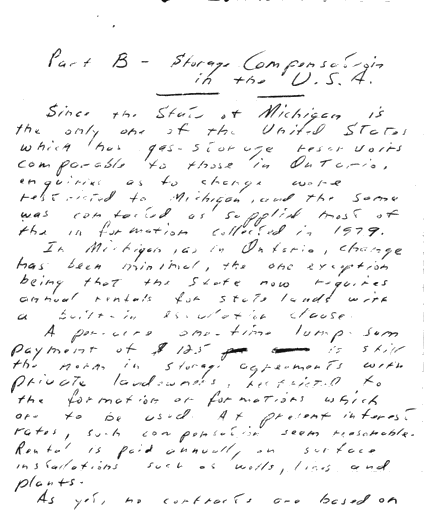 Part B - Storage Compensation
in the U.S.A.
Since the State of Michigan is
the only one of the United States
which has gas-storage reservoirs
comparable to those in Ontario,
enquiries as to change were
restricted to Michigan, and the same
was contacted as supplied most of
the information collected in 1979.
In Michigan, as in Ontario, change
has been minimal, the one exception
being that the State now requires
annual rentals for state lands with
a built-in escalation clause.
A per-acre one-time lump-sum
payment of $125 is still
the norm in storage agreements with
private landowners, restricted to
the formation or formations which
are to be used. At present interest
rates, such compensation seem reasonable.
Rental is paid annually, on surface
installations such as wells, lines and
plants.
As yet, no contracts are based on